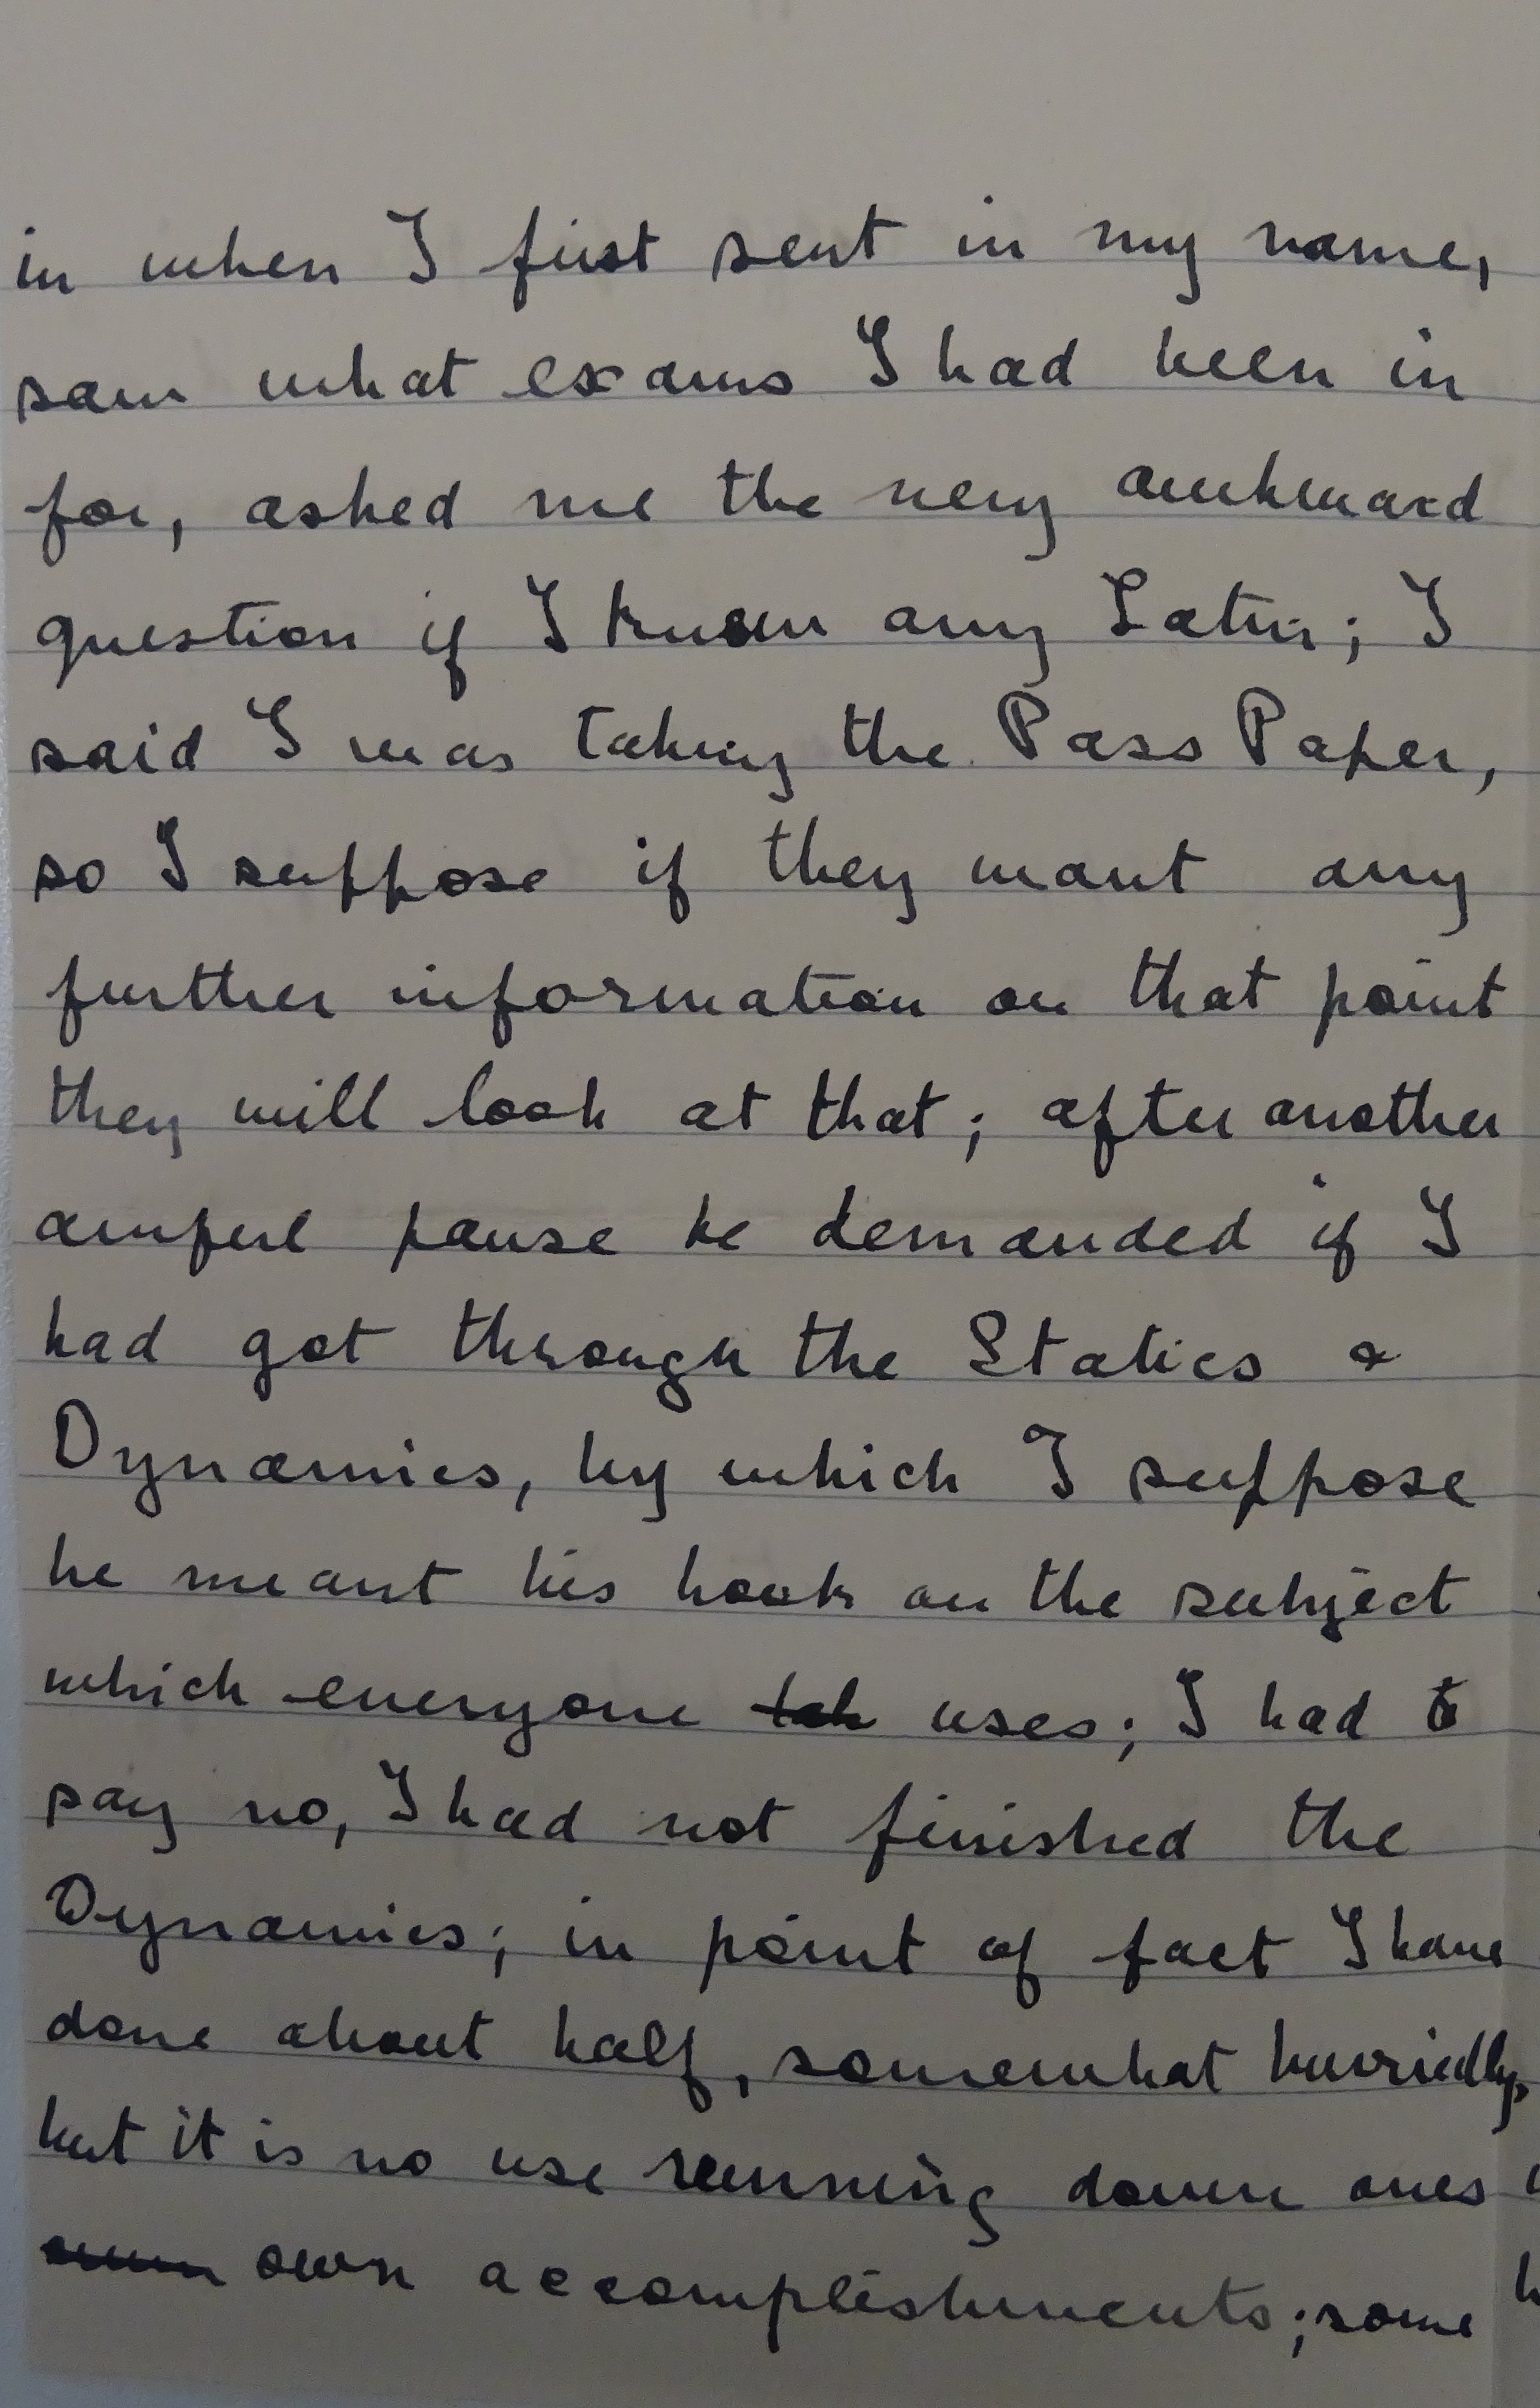 in when I first sent in my name,
saw what exams I had been in
for, asked me the very awkward
question if I knew any Latin; I
said I was taking the Pass Paper,
so I suppose if they want any
further information on that point
they will look at that; after another
awful pause he demanded if I
had got through the Statics &
Dynamics, by which I suppose
he meant his book on the subject
which everyone uses; I had to
say no, I had not finished the
Dynamics; in point of fact I have
done about half, somewhat hurriedly,
but it is no use running down ones
own accomplishments; some